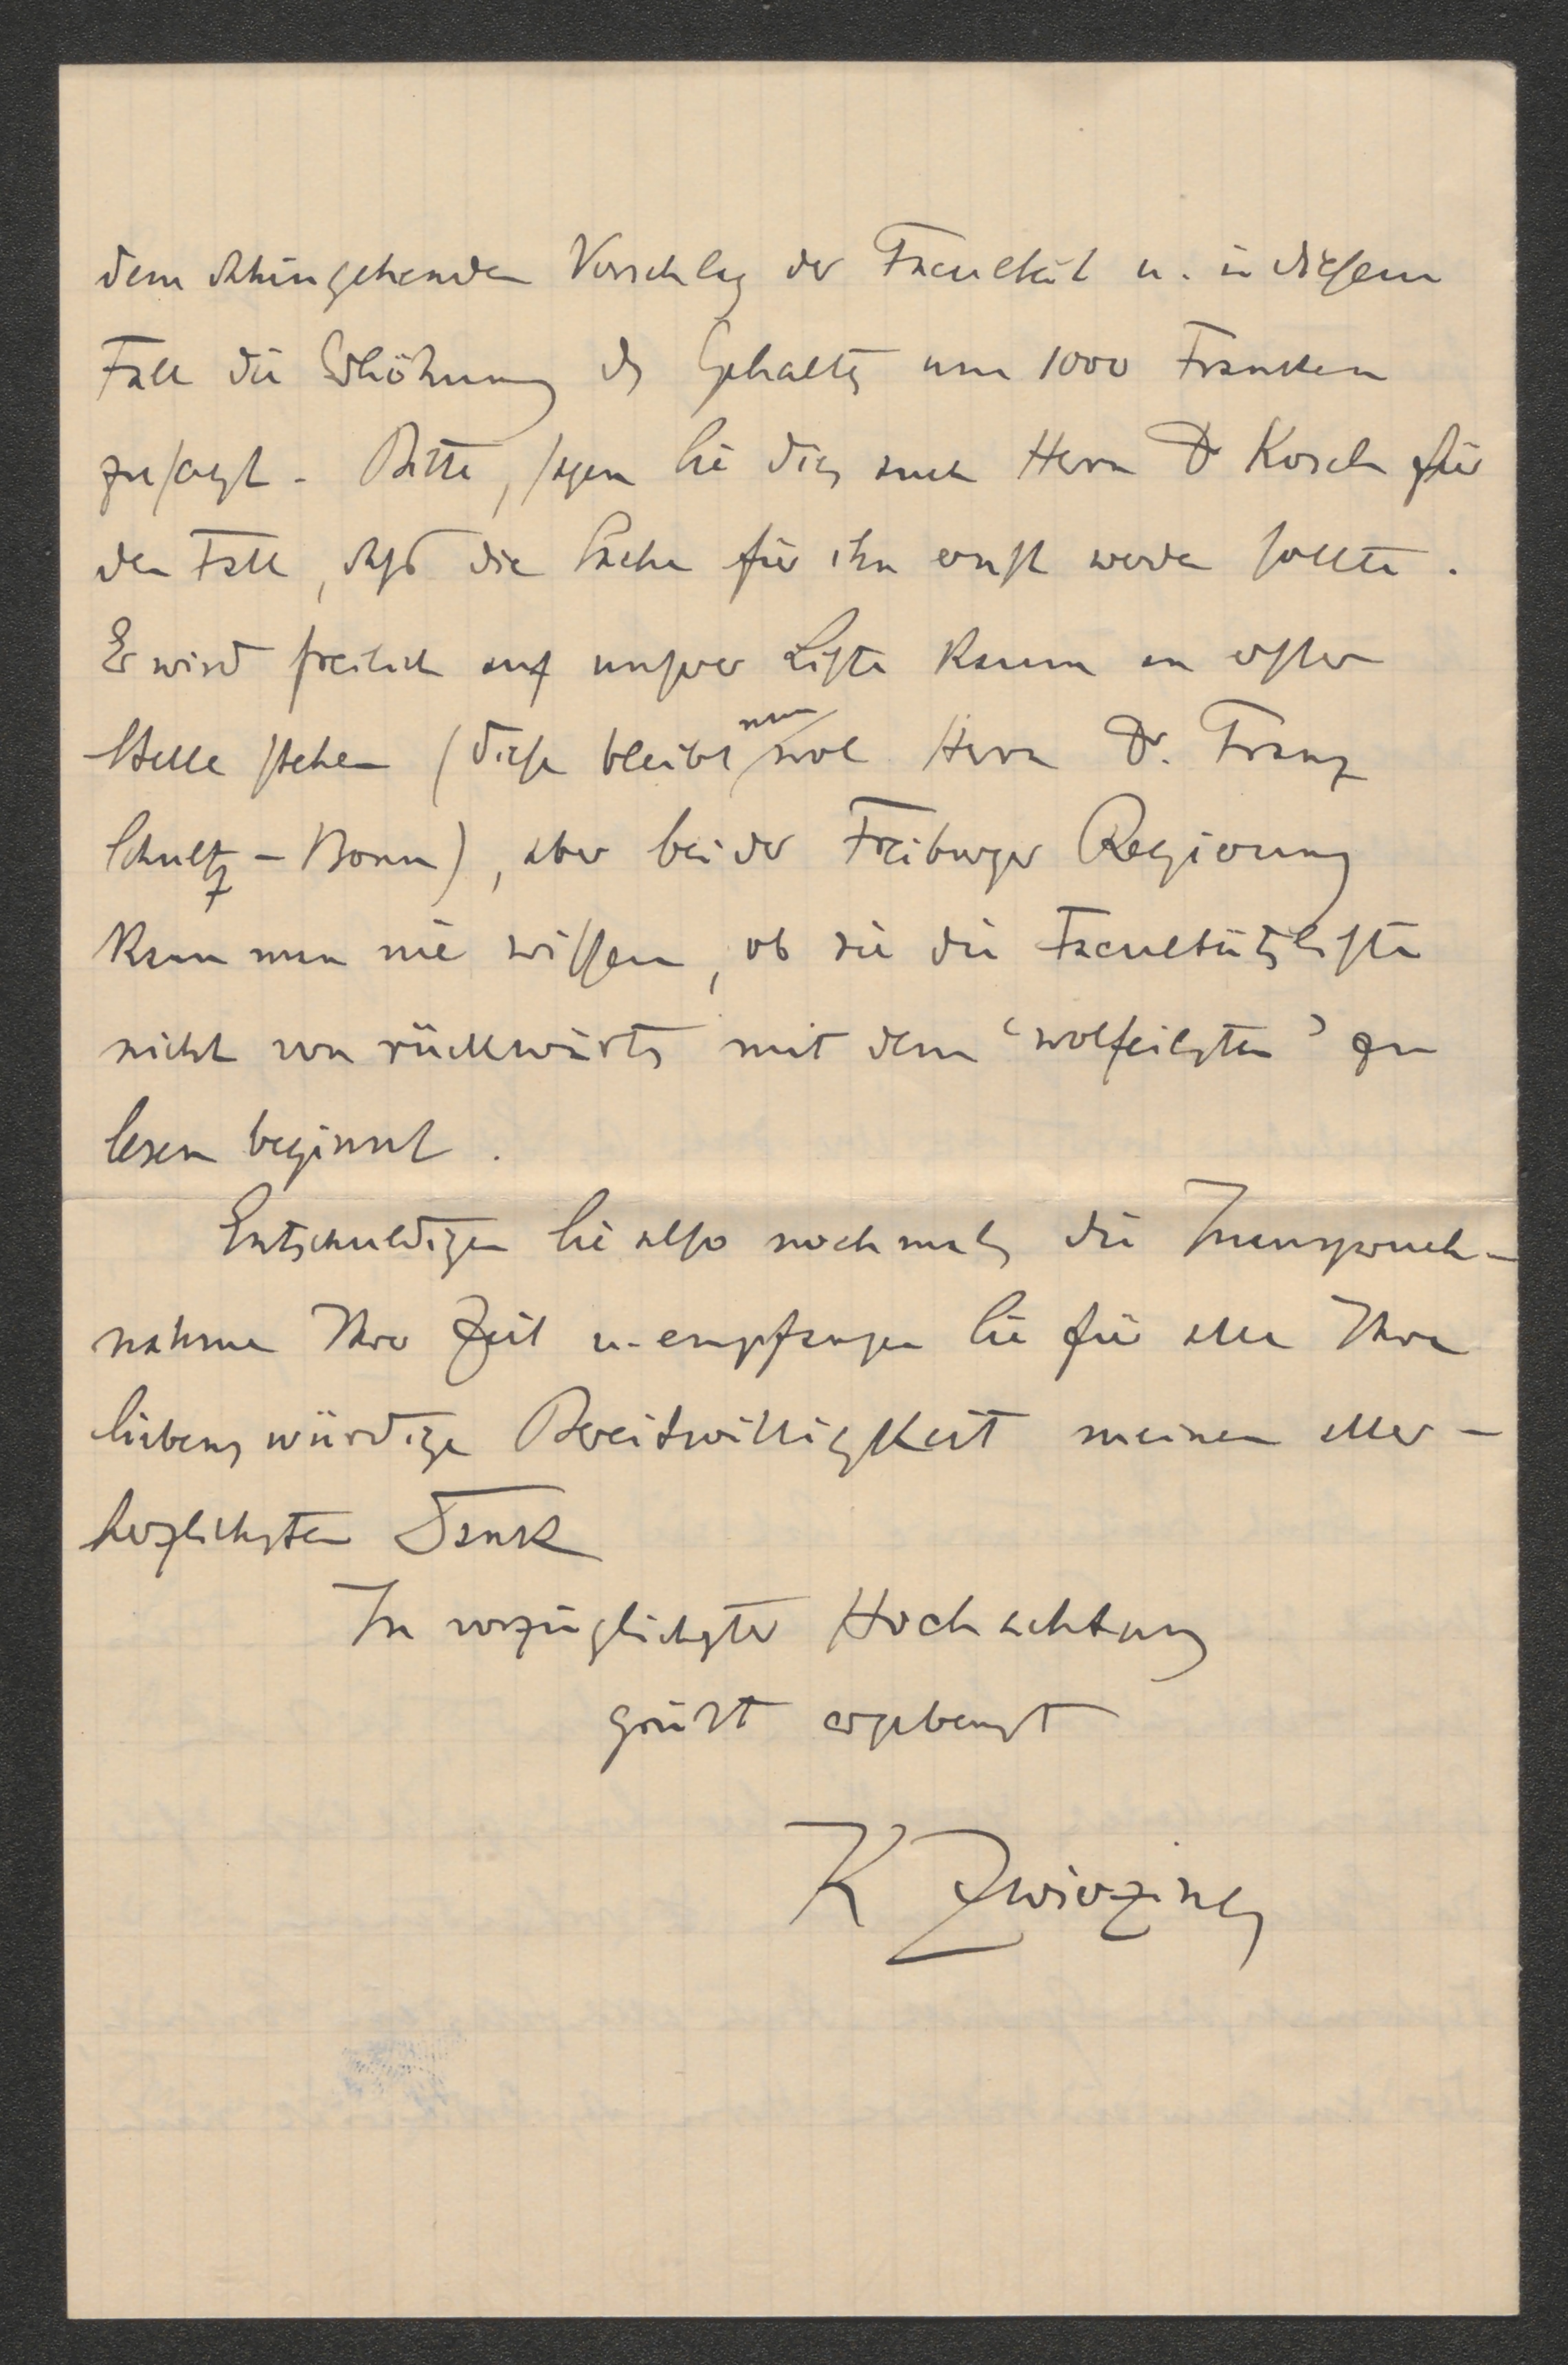 dem dahingehenden Vorschlag der Facultät u. in diesem
Falle die Erhöhung des Gehaltes um 1000 Franken
zusagt. Bitte, sagen Sie dies auch Herrn Dr Kosch für
den Fall, dass die Sache für ihn ernst werden sollte.
Er wird freilich auf unserer Liste kaum an erster
Stelle stehen (diese bleibt nun wol Herrn Dr. Franz
Schultz - Bonn), aber bei der Freiburger Regierung
kann man nie wissen, ob sie die Facultätsliste
nicht von rückwärts mit dem ‘wolfeilsten’ zu
lesen beginnt.
Entschuldigen Sie also nochmals die Inanspruch-
nahme Ihrer Zeit u. empfangen Sie für alle Ihre
liebenswürdige Bereitwilligkeit meinen aller-
herzlichsten Dank
In vorzüglichster Hochachtung
grüßt ergebenst
K Zwierzina